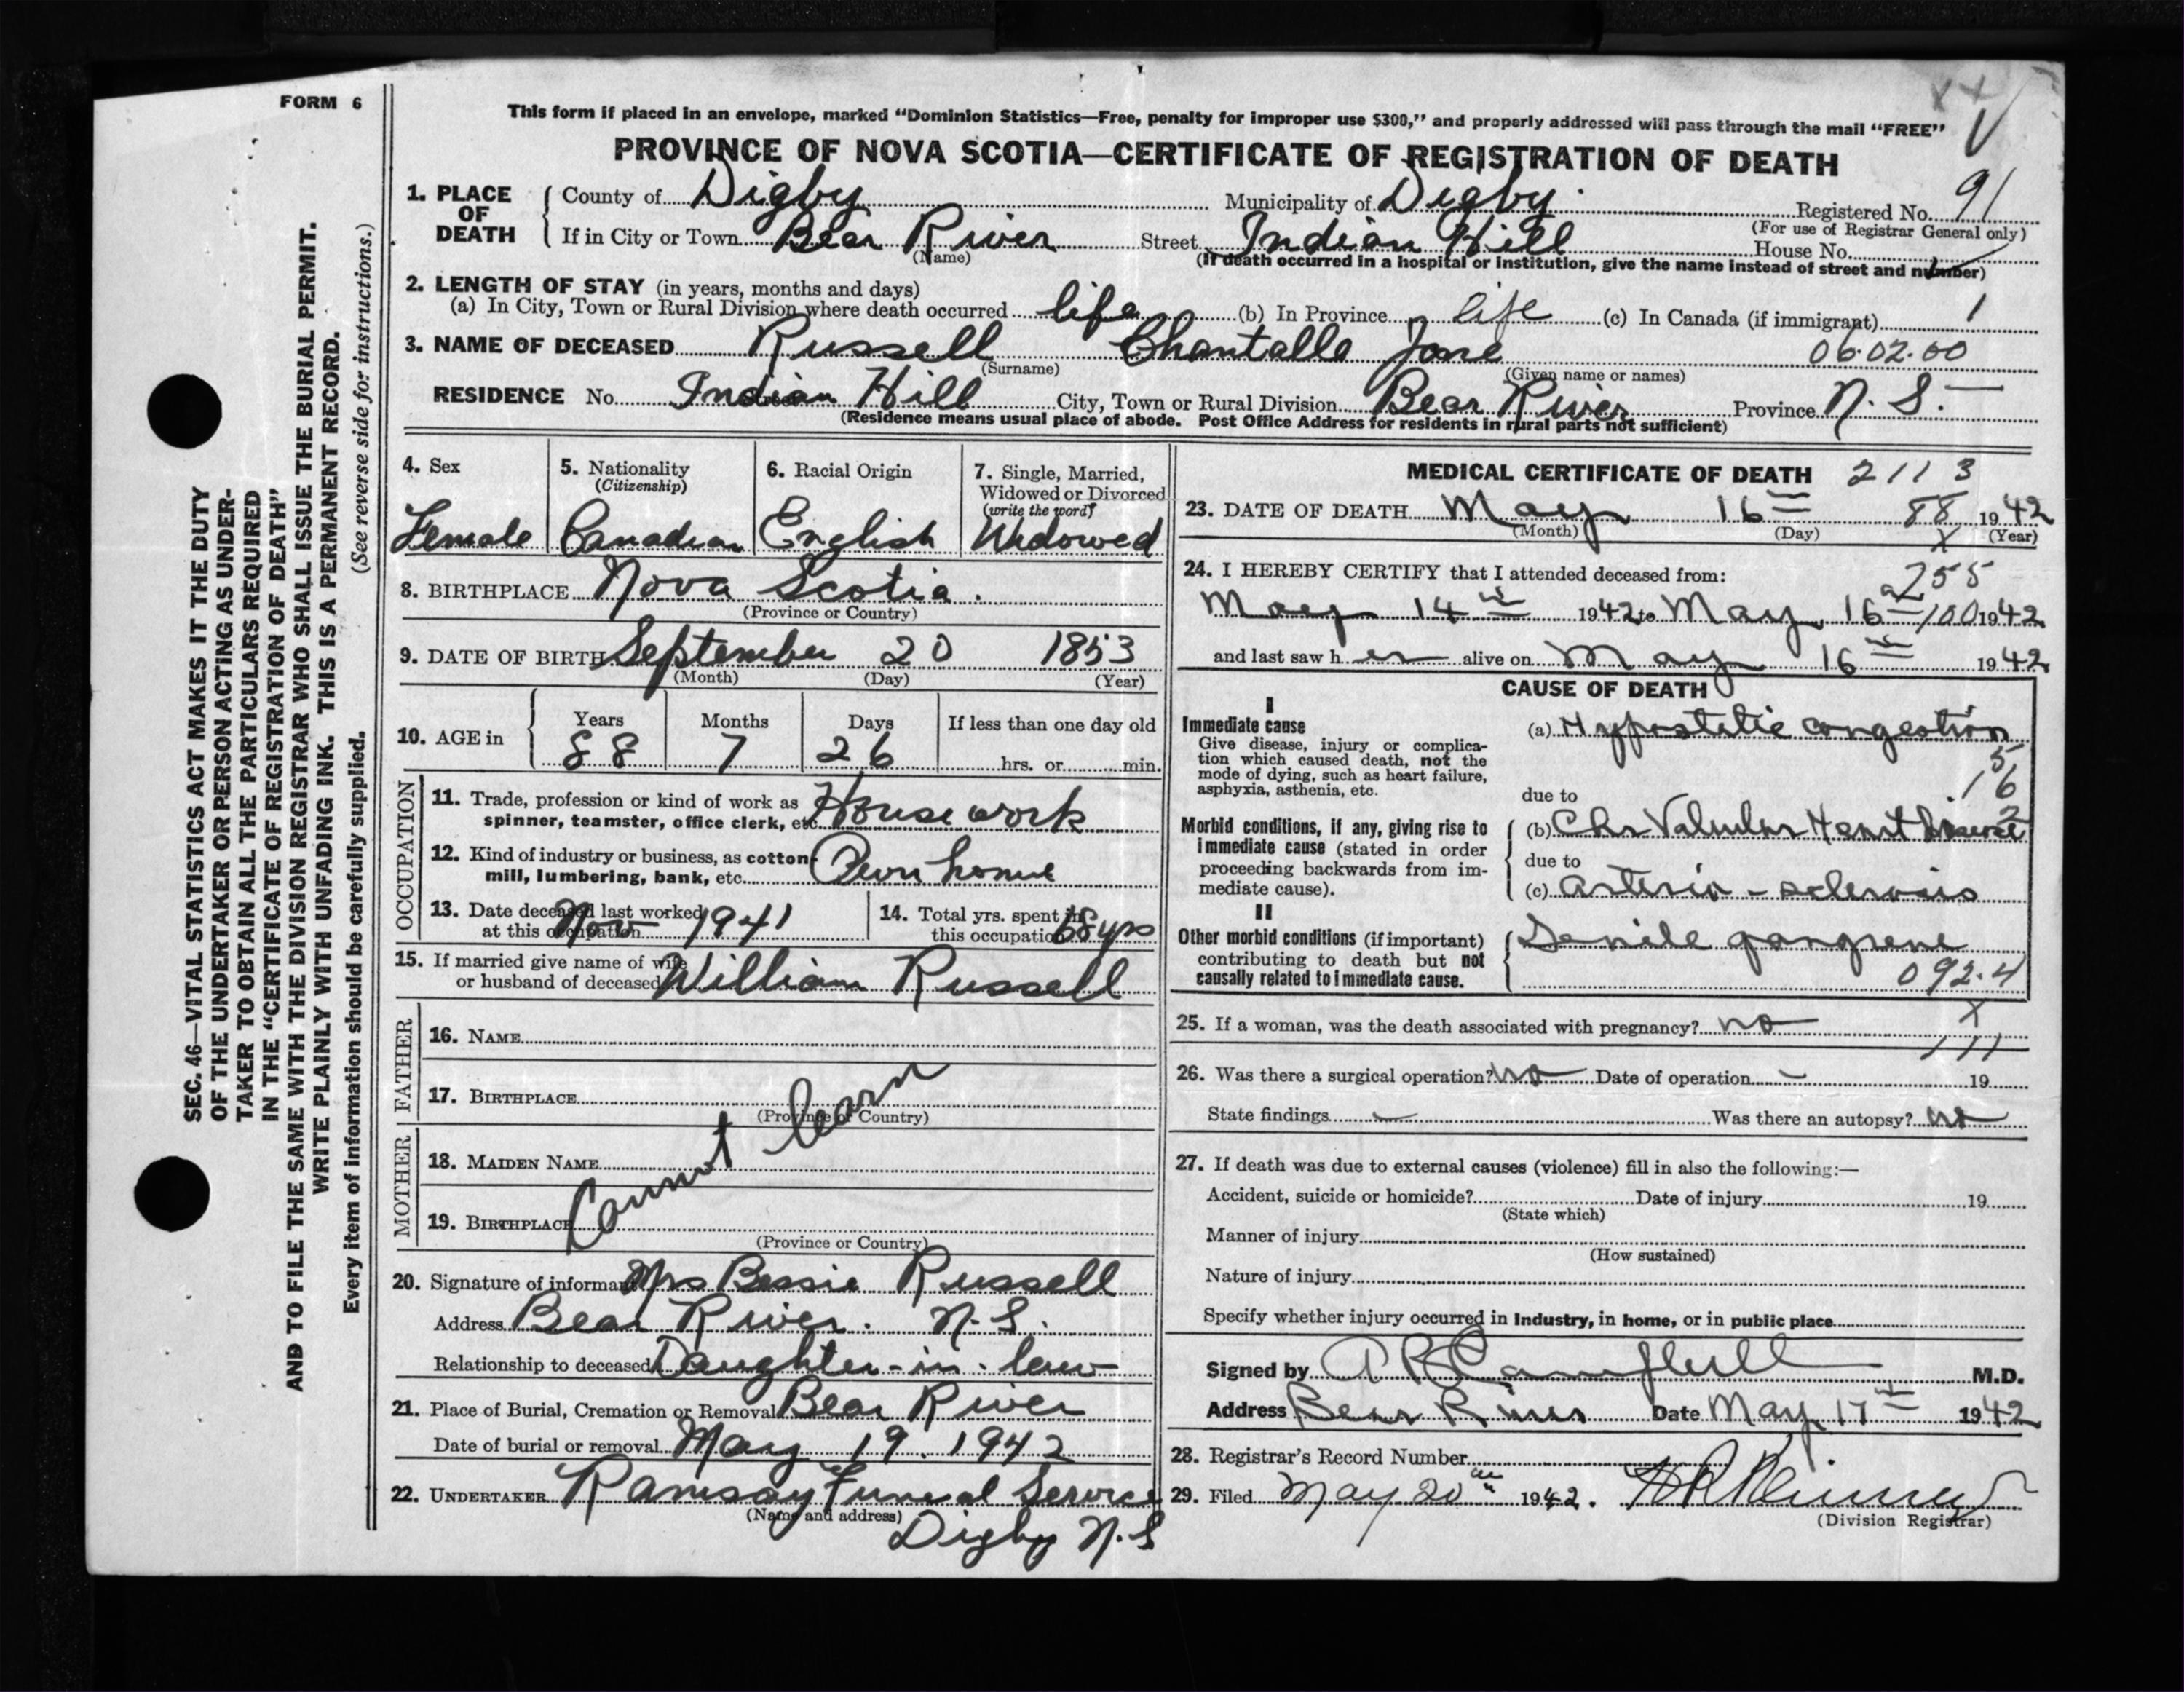 FORM 6
This form if placed in an envelope, marked “Dominion Statistics—Free, penalty for improper use $300,” and properly addressed will pass through the mail “FREE”
PROVINCE OF NOVA SCOTIA—CERTIFICATE OF REGISTRATION OF DEATH
1. PLACE OF DEATH { County of Digby Municipality of Digby. Registered No. 91
(For use of Registrar General only)
If in City or Town Bear River Street Indian Hill House No.
(Name) (If death occurred in a hospital or institution, give the name instead of street and number)
2. LENGTH OF STAY (in years, months and days)
(a) In City, Town or Rural Division where death occurred life (b) In Province life (c) In Canada (if immigrant) 1
3. NAME OF DECEASED Russell Chantalle Jane 06.02.00
(Surname) (Given name or names)
RESIDENCE No. Indian Hill City, Town or Rural Division Bear River Province N. S. —
(Residence means usual place of abode. Post Office Address for residents in rural parts not sufficient)
4. Sex Female
5. Nationality (Citizenship) Canadian
6. Racial Origin English
7. Single, Married, Widowed or Divorced (write the word) Widowed
8. BIRTHPLACE Nova Scotia.
(Province or Country)
9. DATE OF BIRTH September 20 1853
(Month) (Day) (Year)
10. AGE in Years 88 Months 7 Days 26 If less than one day old hrs. or min.
OCCUPATION
11. Trade, profession or kind of work as spinner, teamster, office clerk, etc. House work
12. Kind of industry or business, as cotton-mill, lumbering, bank, etc. Own home
13. Date deceased last worked at this occupation Nov 1941
14. Total yrs. spent in this occupation 68 yrs
15. If married give name of wife or husband of deceased William Russell
FATHER
16. NAME
17. BIRTHPLACE
(Province or Country)
MOTHER
18. MAIDEN NAME
19. BIRTHPLACE
(Province or Country)
Cannot learn
20. Signature of informant Mrs Bessie Russell
Address Bear River. N. S.
Relationship to deceased Daughter-in-law
21. Place of Burial, Cremation or Removal Bear River
Date of burial or removal May 19. 1942
22. UNDERTAKER Ramsay Funeral Service
(Name and address)
Digby N.S
MEDICAL CERTIFICATE OF DEATH 2113
23. DATE OF DEATH May 16th 88 1942
(Month) (Day) X (Year)
24. I HEREBY CERTIFY that I attended deceased from: 255
May 14th 1942 to May 16th 100 1942
and last saw her alive on May 16th 1942
CAUSE OF DEATH
I
Immediate cause
Give disease, injury or complication which caused death, not the mode of dying, such as heart failure, asphyxia, asthenia, etc.
(a) Hypostatic congestion
due to
Morbid conditions, if any, giving rise to immediate cause (stated in order proceeding backwards from immediate cause).
(b) Chr Valvular Heart Disease
due to
(c) Arterio-sclerosis
II
Other morbid conditions (if important) contributing to death but not causally related to immediate cause.
Senile gangrene
092.4
25. If a woman, was the death associated with pregnancy? no X
111
26. Was there a surgical operation? no Date of operation – 19
State findings — Was there an autopsy? no
27. If death was due to external causes (violence) fill in also the following:—
Accident, suicide or homicide? Date of injury 19
(State which)
Manner of injury
(How sustained)
Nature of injury
Specify whether injury occurred in Industry, in home, or in public place
Signed by Campbell M.D.
Address Bear River Date May 17th 1942
28. Registrar's Record Number
29. Filed May 20th 1942.
(Division Registrar)
SEC. 46—VITAL STATISTICS ACT MAKES IT THE DUTY
OF THE UNDERTAKER OR PERSON ACTING AS UNDER-
TAKER TO OBTAIN ALL THE PARTICULARS REQUIRED
IN THE “CERTIFICATE OF REGISTRATION OF DEATH”
AND TO FILE THE SAME WITH THE DIVISION REGISTRAR WHO SHALL ISSUE THE BURIAL PERMIT.
WRITE PLAINLY WITH UNFADING INK. THIS IS A PERMANENT RECORD.
Every item of information should be carefully supplied. (See reverse side for instructions.)